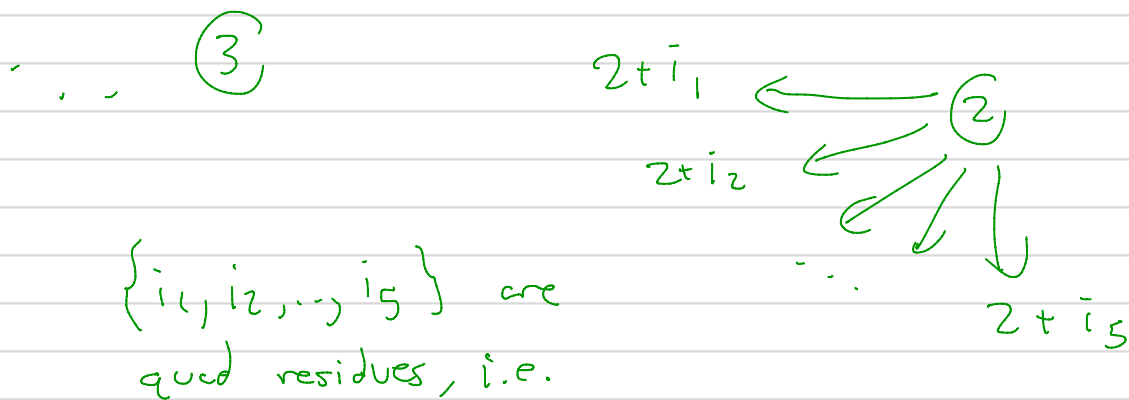 ... ③ 2+i₁ ②
2+i₂
{i₁, i₂, .., i₅} are ...
2+i₅
quad residues, i.e.